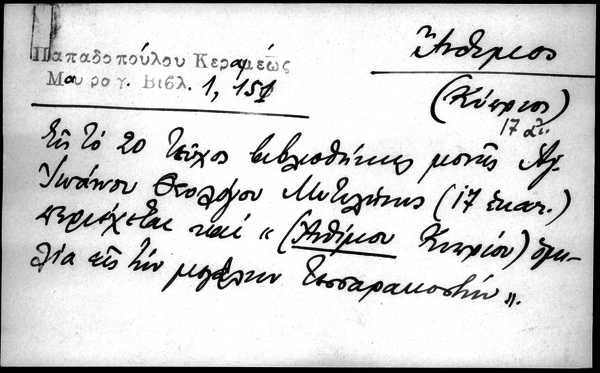 Παπαδοπούλου Κεραμέως
Μαυρογ. Βιβλ. 1, 151
Ἄνθιμος
(Κύπριος)
17 αἰ.
Εἰς τὸ 20 τεῦχος βιβλιοθήκης μονῆς Ἁγ.
Ἰωάννου Θεολόγου Μυτιλήνης (17 ἑκατ.)
περιέχεται καὶ «(Ἀνθίμου Κυπρίου) ὁμι-
λία εἰς τὴν μεγάλην Τεσσαρακοστήν».